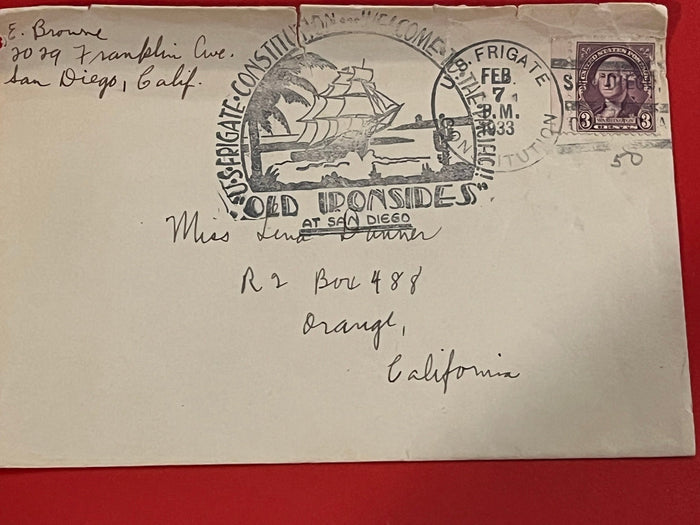 E. Browne
2029 Franklin Ave.
San Diego, Calif.
U·S·FRIGATE·CONSTITUTION---WELCOME TO THE PACIFIC!!
OLD IRONSIDES
AT SAN DIEGO
U.S. FRIGATE
FEB
7
P.M.
1933
CONSTITUTION
UNITED STATES POSTAGE
SAN DIEGO
3 WASHINGTON 3
CENTS
50
Miss Lena Danner
R2 Box 488
Orange,
California